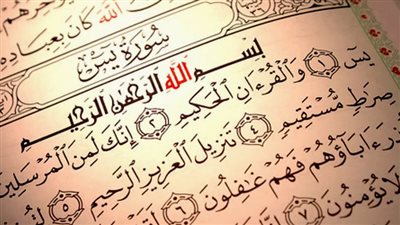 الله كان بعباده
سورة يس
بسم الله الرحمن الرحيم
يس ١ والقرءان الحكيم ٢ إنك لمن المرسلين
صرط مستقيم ٤ تنزيل العزيز الرحيم ٥
ءاباؤهم فهم غفلون ٦
لا يؤمنون ٧